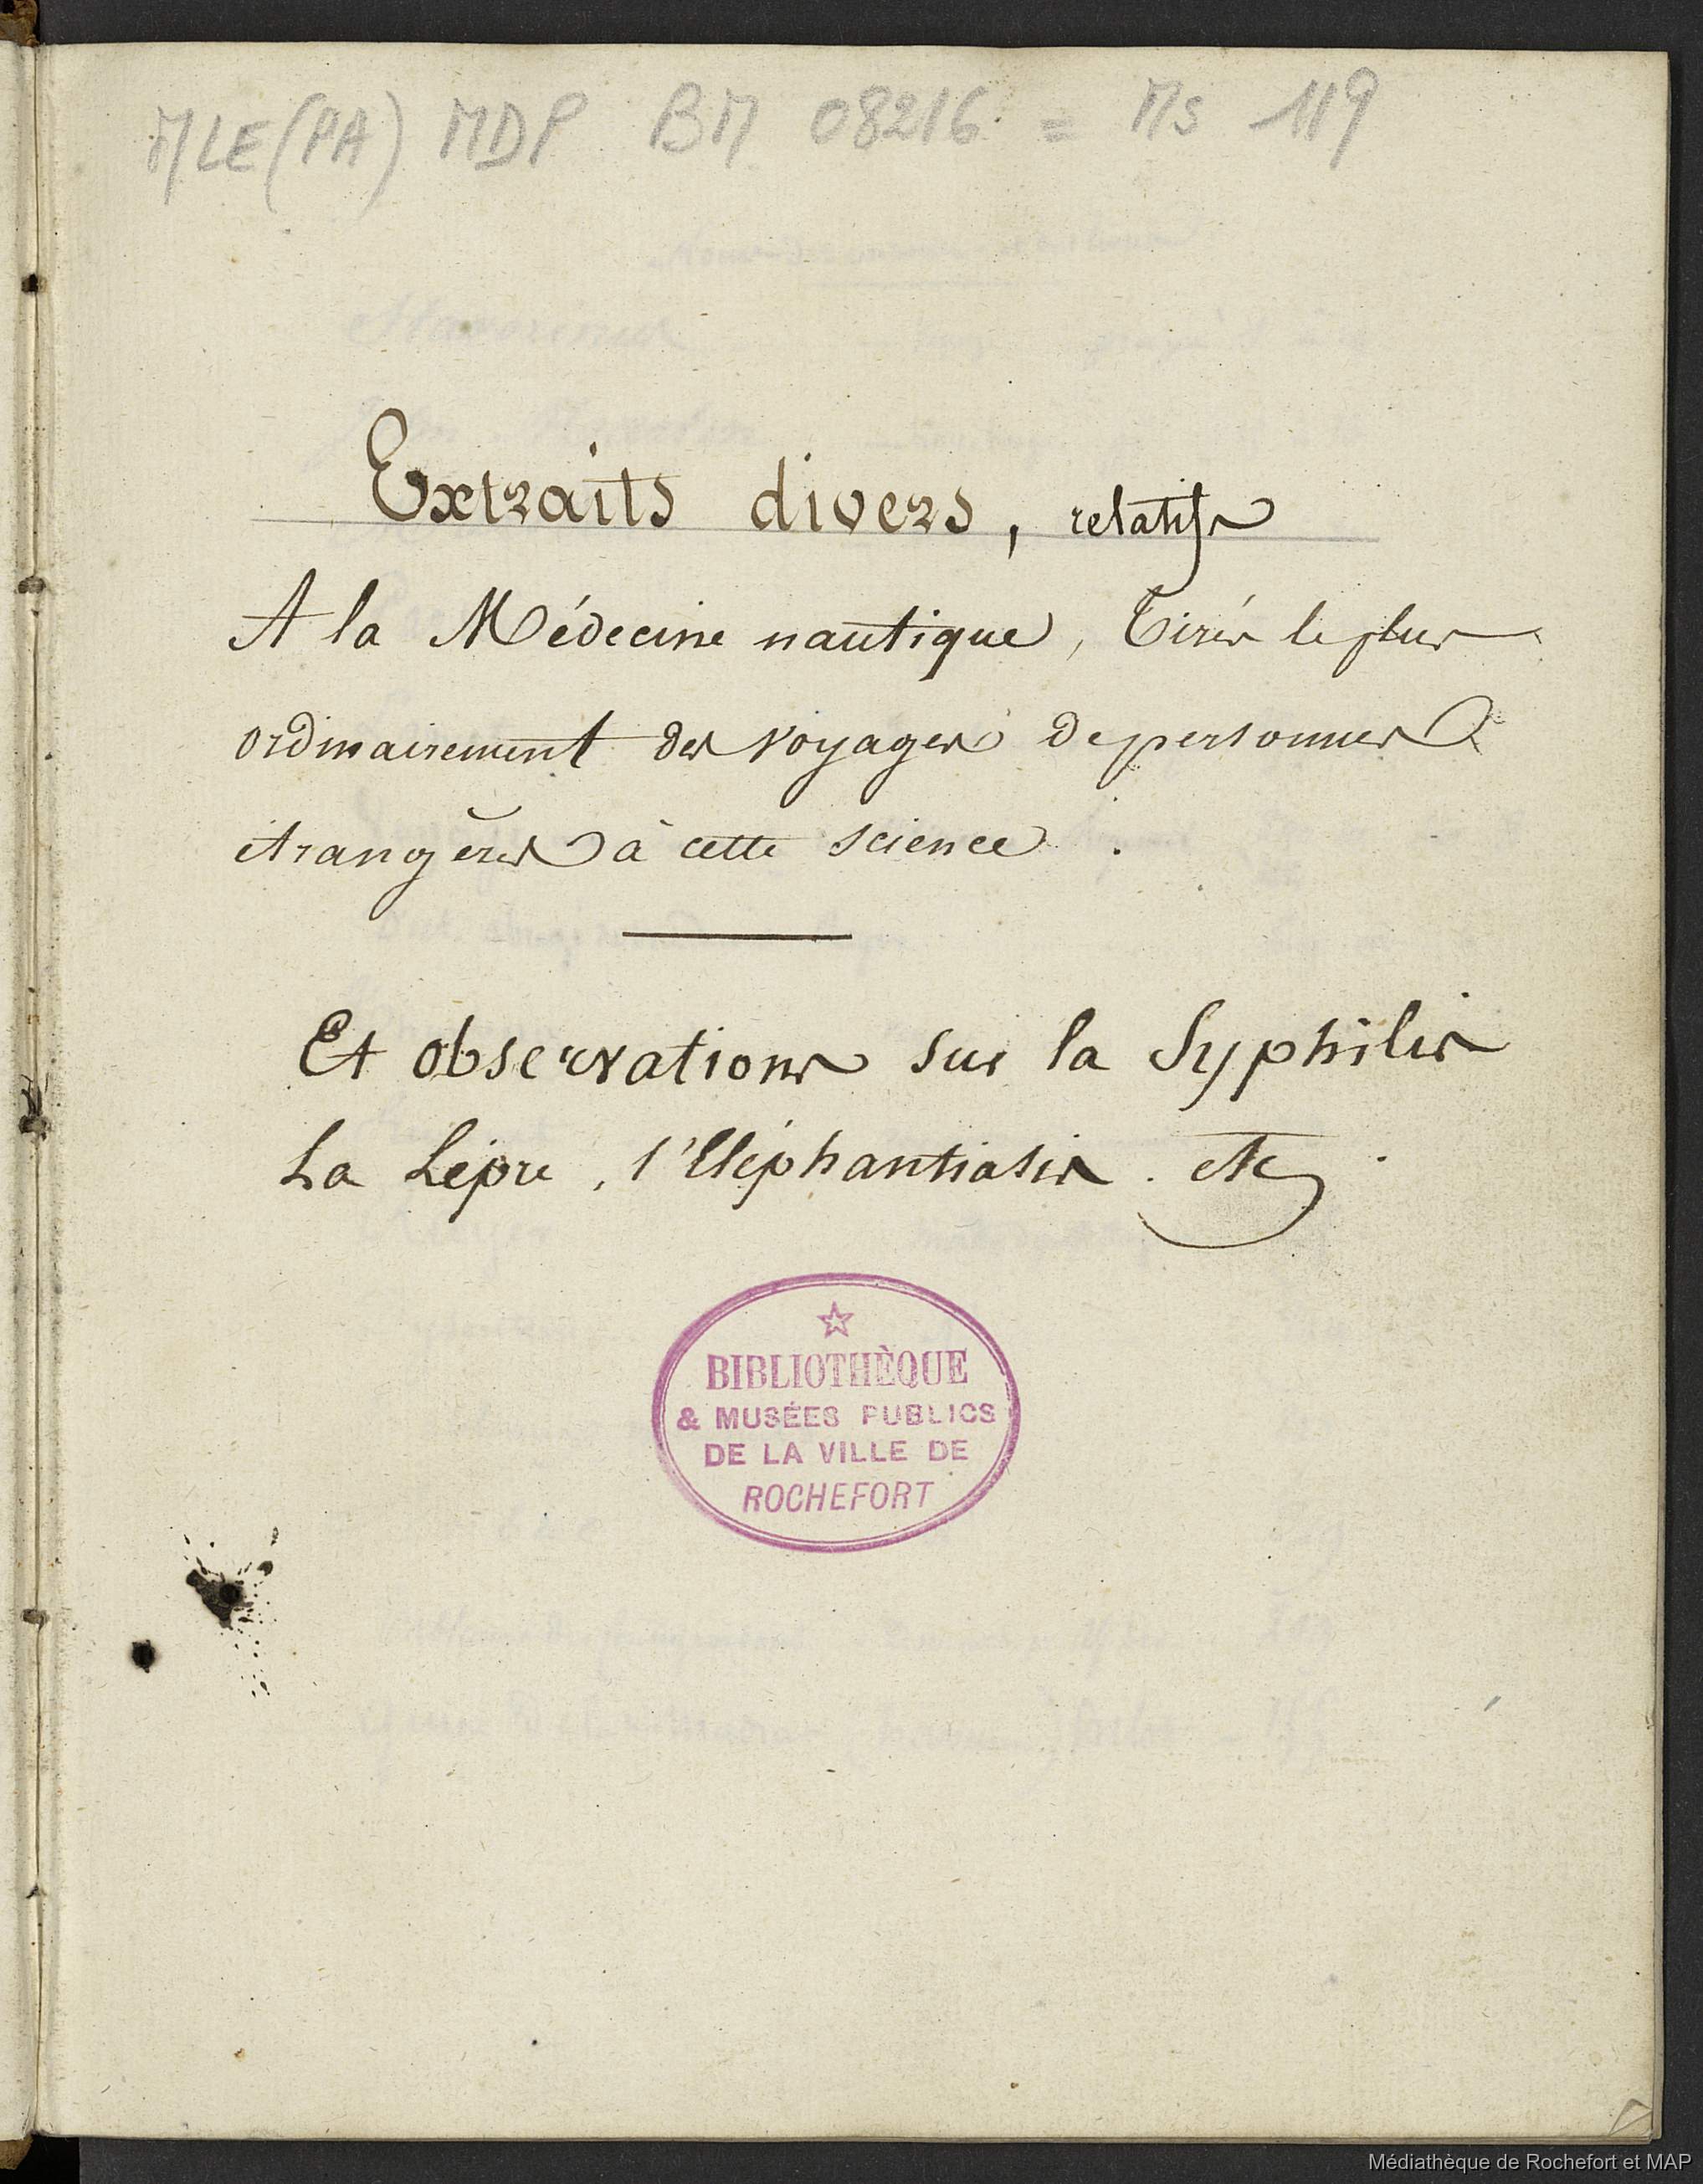 MLE (PA) MDP BM 08216 = Ms 119
Extraits divers, relatifs
A la Médecine nautique, Tirés le plus
ordinairement des voyages de personnes
étrangères à cette science.
Et observations sur la Syphilis
La Lèpre, l'Eléphantiasis. etc.
BIBLIOTHÈQUE
& MUSÉES PUBLICS
DE LA VILLE DE
ROCHEFORT
Médiathèque de Rochefort et MAP